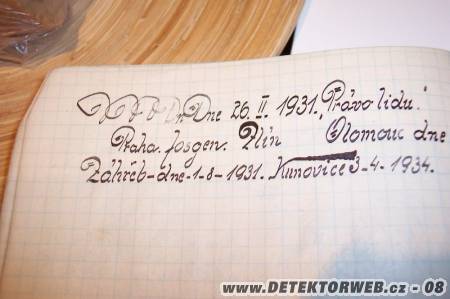 Dne 26. II. 1931. „Právo lidu."
Praha. fosgen. Plín Olomouc dne
Záhřeb-dne-1-8-1931. Kunovice 3-4-1934.
www.DETEKTORWEB.cz - 08